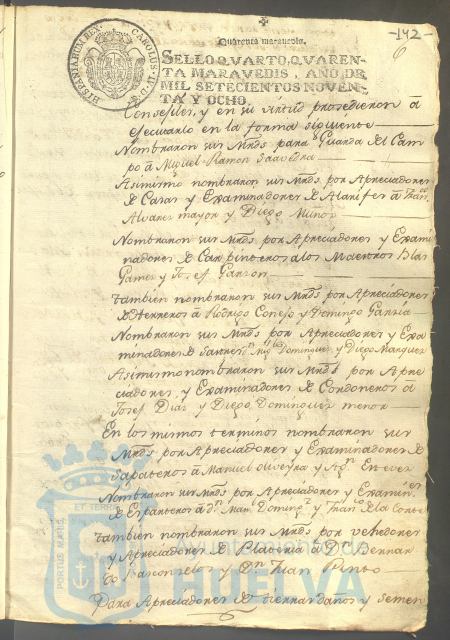 -142-
6
Quarenta maravedis.
SELLO QVARTO, QVAREN-
TA MARAVEDIS, AÑO DE
MIL SETECIENTOS NOVEN-
TA Y OCHO.
CAROLUS IV D.G. HISPANIARUM REX
y en su virtud prosedieron á
efecuarlo en la forma siguiente
Nombraron sus Mrds para Guarda del Cam-
po á Miguel Ramon Saavedra
Asimismo nombraron sus Mrds por Apreciadores
de Casas y Examinadores de Alarifes á
Alvarez mayor y Diego Muñoz
Nombraron sus Mrds por Apreciadores y Exami-
nadores de Carpinteros a los Maestros Blas
Gomez y Josef Garzon
Tambien nombraron sus Mrds por Apreciadores
de Herreros á Rodrigo Conejo y Domingo Garzia
Nombraron sus Mrds por Apreciadores y Exa-
minadores de Sastres Domingues y Diego Marquez
Asimismo nombraron sus Mrds por Apre-
ciadores, y Examinadores de Cordoneros á
Josef Dias y Diego Dominguez menor
En los mismos terminos nombraron sus
Mrds por Apreciadores y Examinadores de
Sapateros á Manuel Oliveyra y Estevez
Nombraron sus Mrds por Apreciadores y
de Esparteros á y de la Corte
Tambien nombraron sus Mrds por vehedores
y Apreciadores de Plateria á Dn Bernar-
do Basconselos y Dn Juan Pinto
Para Apreciadores de tierras daños y semen
PORTUS MARIS ET TERRAE
Ayuntamiento de
HUELVA